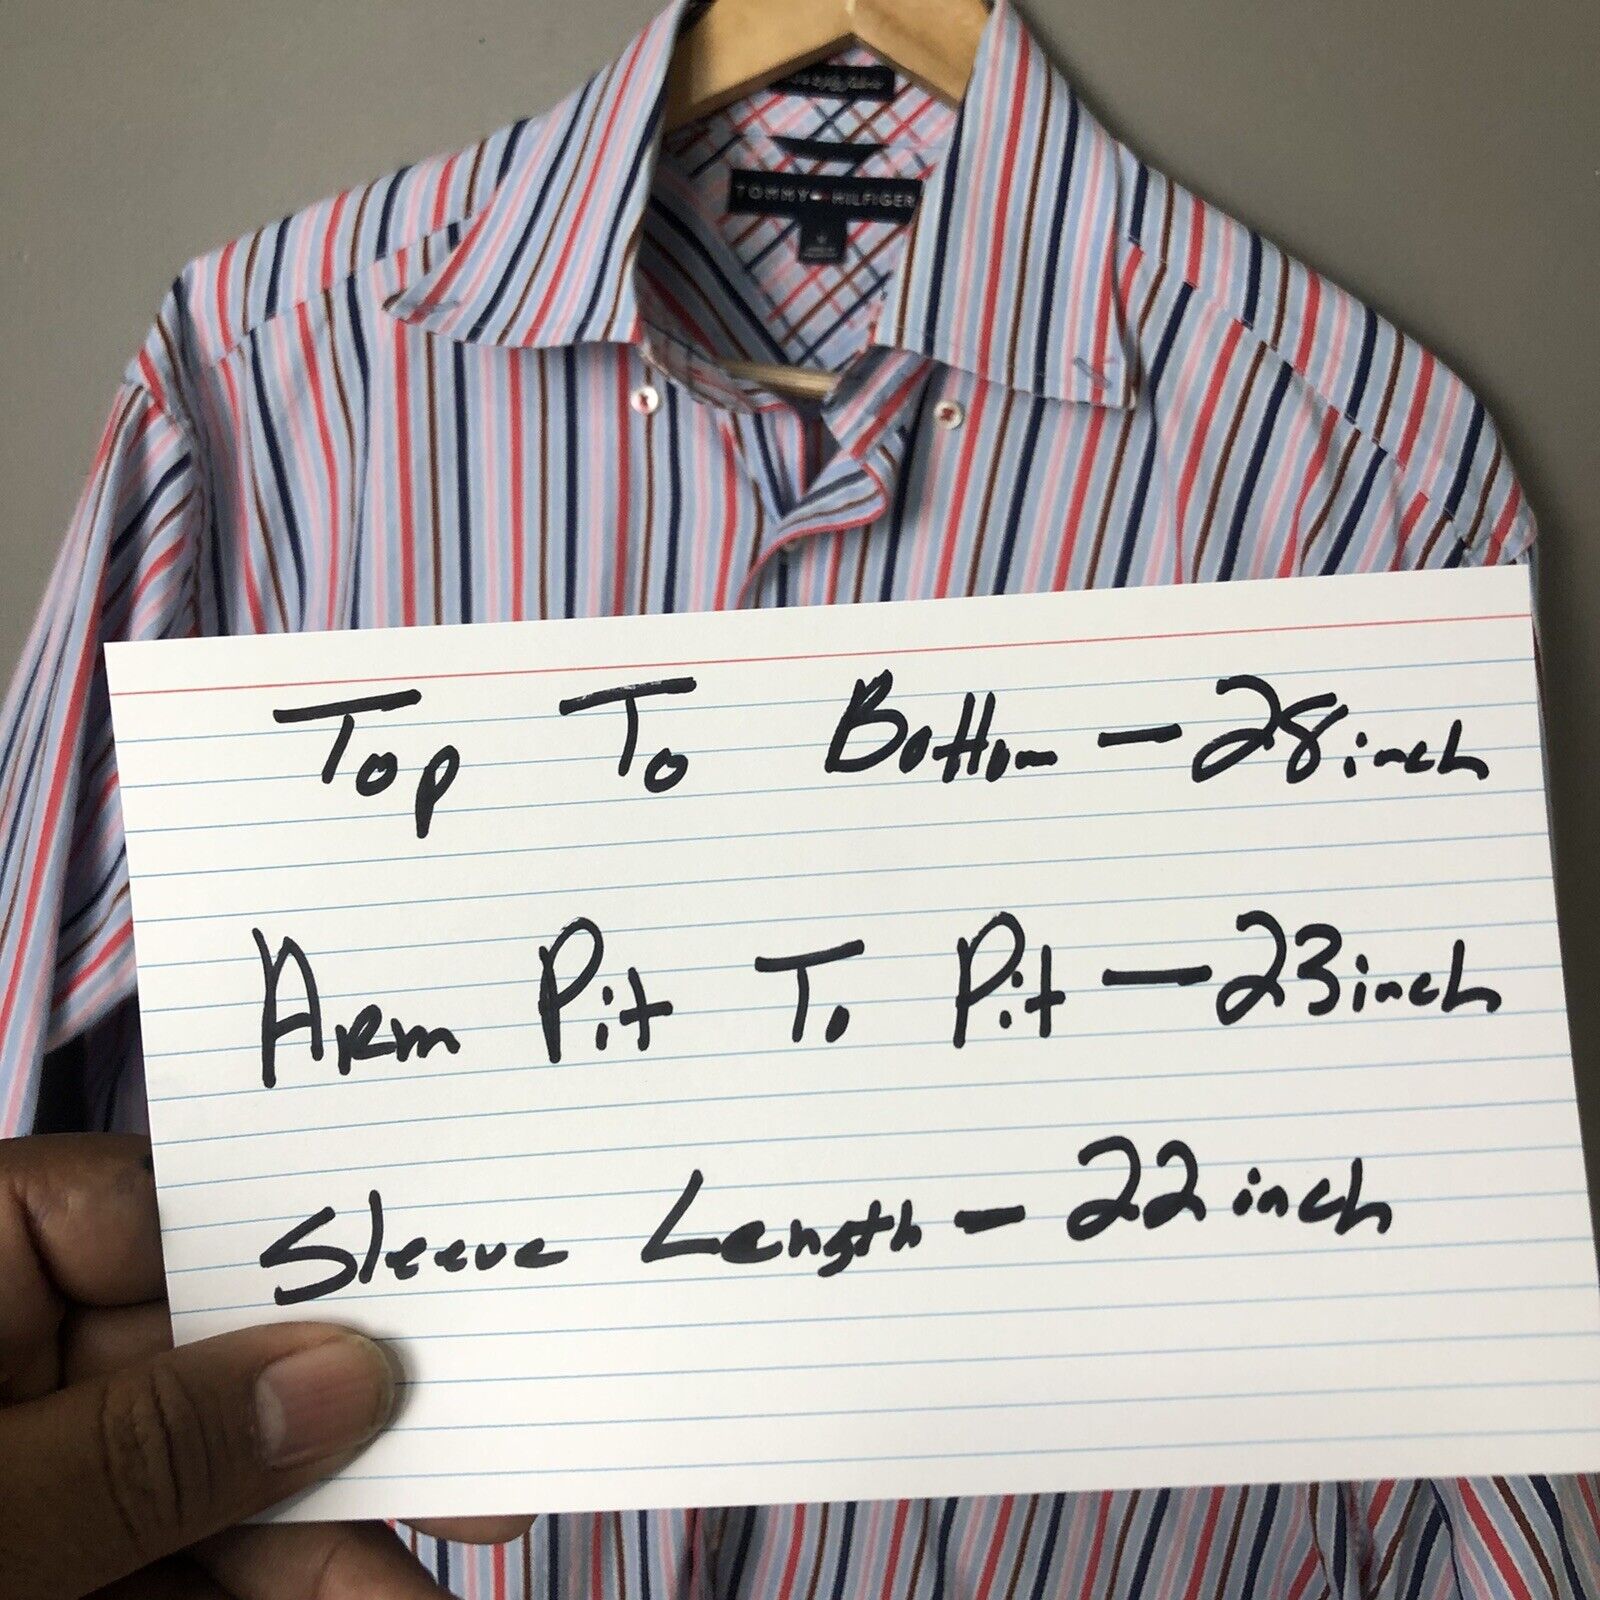 TOMMY HILFIGER
Top To Bottom - 28 inch
Arm Pit To Pit - 23 inch
Sleeve Length - 22 inch